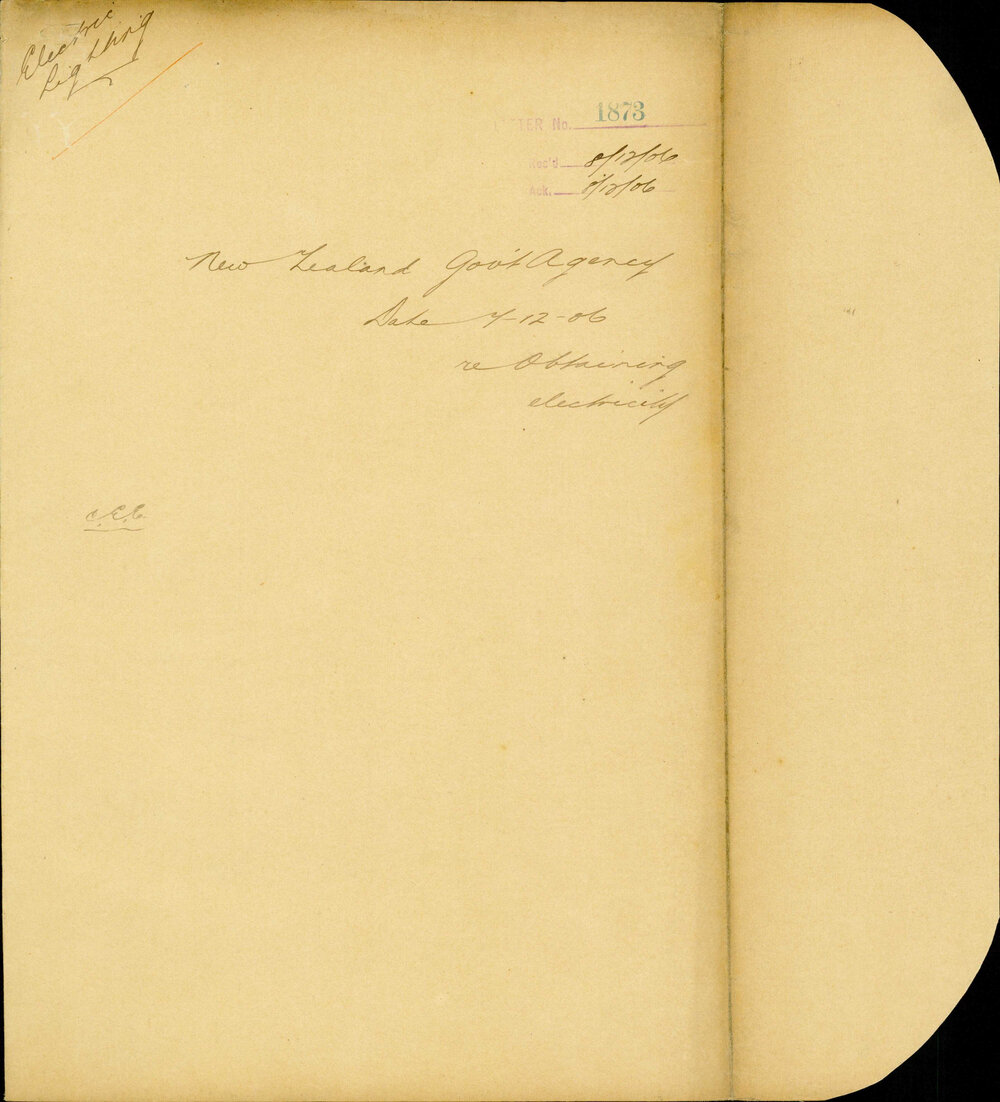 Electric
Lighting
LETTER No. 1873
Rec'd 8/12/06
Ack. 8/12/06
New Zealand Gov't Agency
Date 7-12-06
re Obtaining
electricity